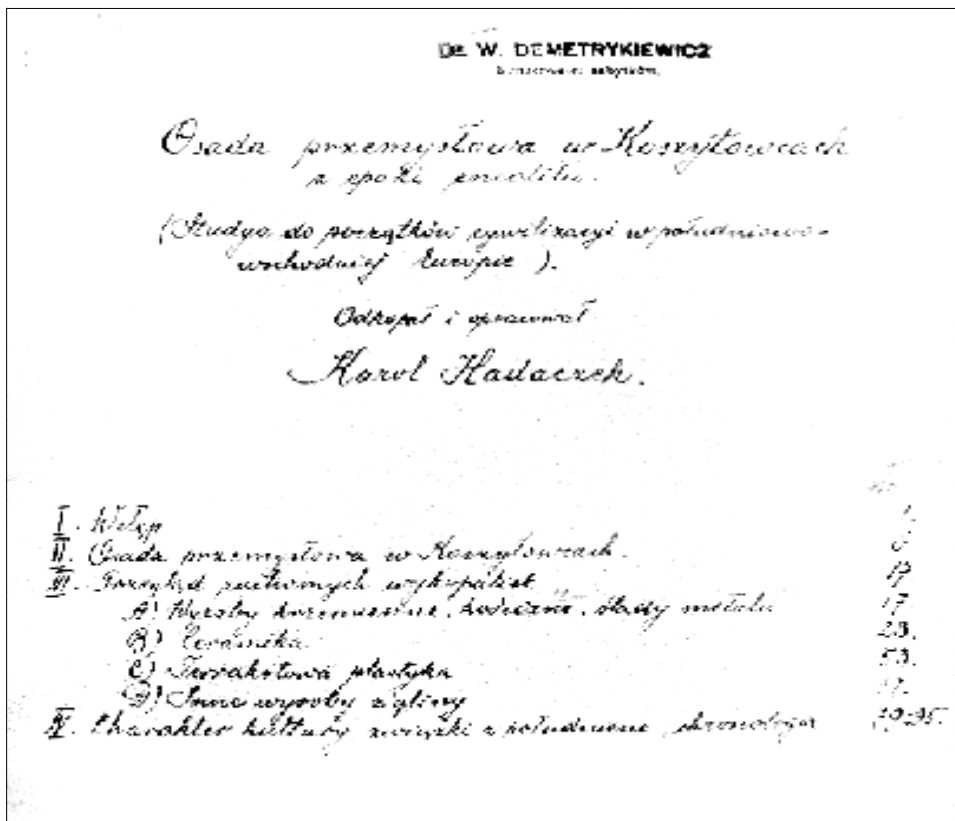 Dr. W. DEMETRYKIEWICZ
Osada przemysłowa w Koszyłowcach
z epoki eneolitu.
(Studya do początków cywilizacyi w południowo-
wschodniej Europie).
Odkopał i opracował
Karol Hadaczek.
I. Wstęp 1.
II. Osada przemysłowa w Koszyłowcach.
III. Przegląd ruchomych wykopalisk 17
A) Wyroby kamienne, kościane, ślady metalu 17.
B) Ceramika 23.
C) Terrakotowa plastyka 53.
D) Inne wyroby z gliny
IV. Charakter kultury związki z południem, chronologia